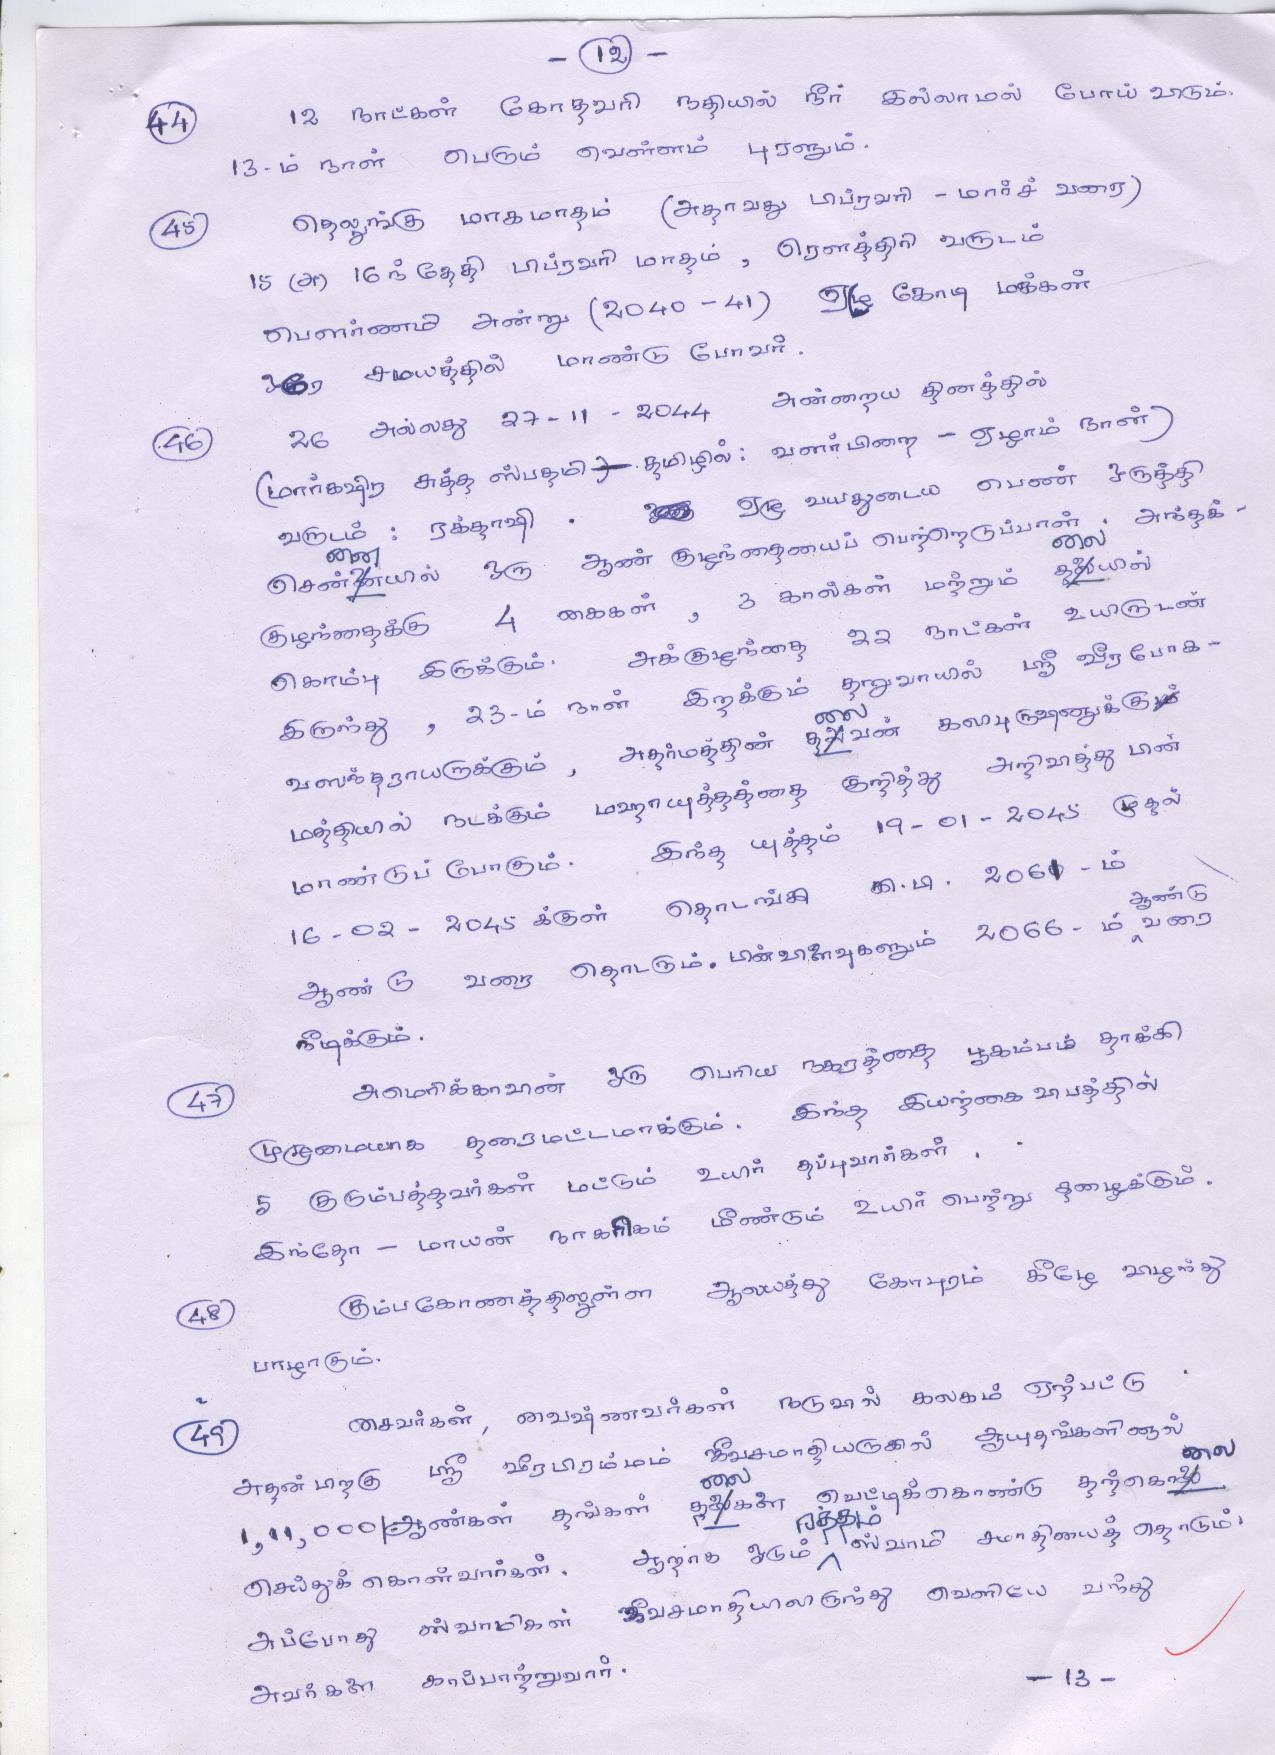 - 12 -
44 12 நாட்கள் கோதாவரி நதியில் நீர் இல்லாமல் போய் விடும்.
13-ம் நாள் பெரும் வெள்ளம் புரளும்.
45 தெலுங்கு மாகமாதம் (அதாவது பிப்ரவரி - மார்ச் வரை)
15 (அ) 16ந் தேதி பிப்ரவரி மாதம், ரௌத்திரி வருடம்
பௌர்ணமி அன்று (2040-41) ஏழு கோடி மக்கள்
ஒரே சமயத்தில் மாண்டு போவர்.
46 26 அல்லது 27-11-2044 அன்றைய தினத்தில்
(மார்கஷிர சுத்த ஸ்பதமி தமிழில்: வளர்பிறை - ஏழாம் நாள்)
வருடம்: ரக்தாஷி. ஏழு வயதுடைய பெண் ஒருத்தி
சென்னையில் ஒரு ஆண் குழந்தையைப் பெற்றெடுப்பாள். அந்தக்-
குழந்தைக்கு 4 கைகள், 3 கால்கள் மற்றும் தலையில்
கொம்பு இருக்கும். அக்குழந்தை 22 நாட்கள் உயிருடன்
இருந்து, 23-ம் நாள் இறக்கும் தறுவாயில் ஸ்ரீ வீரபோக-
வஸந்தராயருக்கும், அதர்மத்தின் தலைவன் கலிபுருஷனுக்கும்
மத்தியில் நடக்கும் மஹாயுத்தத்தை குறித்து அறிவித்து பின்
மாண்டுப் போகும். இந்த யுத்தம் 19-01-2045 முதல்
16-02-2045 க்குள் தொடங்கி கி.பி. 2061-ம்
ஆண்டு வரை தொடரும். பின்விளைவுகளும் 2066-ம் ஆண்டு வரை
நீடிக்கும்.
47 அமெரிக்காவின் ஒரு பெரிய நகரத்தை பூகம்பம் தாக்கி
முழுமையாக தரைமட்டமாக்கும். இந்த இயற்கை விபத்தில்
5 குடும்பத்தவர்கள் மட்டும் உயிர் தப்புவார்கள்.
இந்தோ - மாயன் நாகரிகம் மீண்டும் உயிர் பெற்று தழைக்கும்.
48 கும்பகோணத்திலுள்ள ஆலயத்து கோபுரம் கீழே விழுந்து
பாழாகும்.
49 சைவர்கள், வைஷ்ணவர்கள் நடுவில் கலகம் ஏற்பட்டு
அதன்பிறகு ஸ்ரீ வீரபிரம்மம் ஜீவசமாதியருகில் ஆயுதங்களினால்
1,11,000 ஆண்கள் தங்கள் தலைகளை வெட்டிக்கொண்டு தற்கொலை
செய்துக் கொள்வார்கள். ஆறாக ஓடும் ரத்தம் ஸ்வாமி சமாதியைத் தொடும்.
அப்போது ஸ்வாமிகள் ஜீவசமாதியிலிருந்து வெளியே வந்து
அவர்களை காப்பாற்றுவார்.
- 13 -